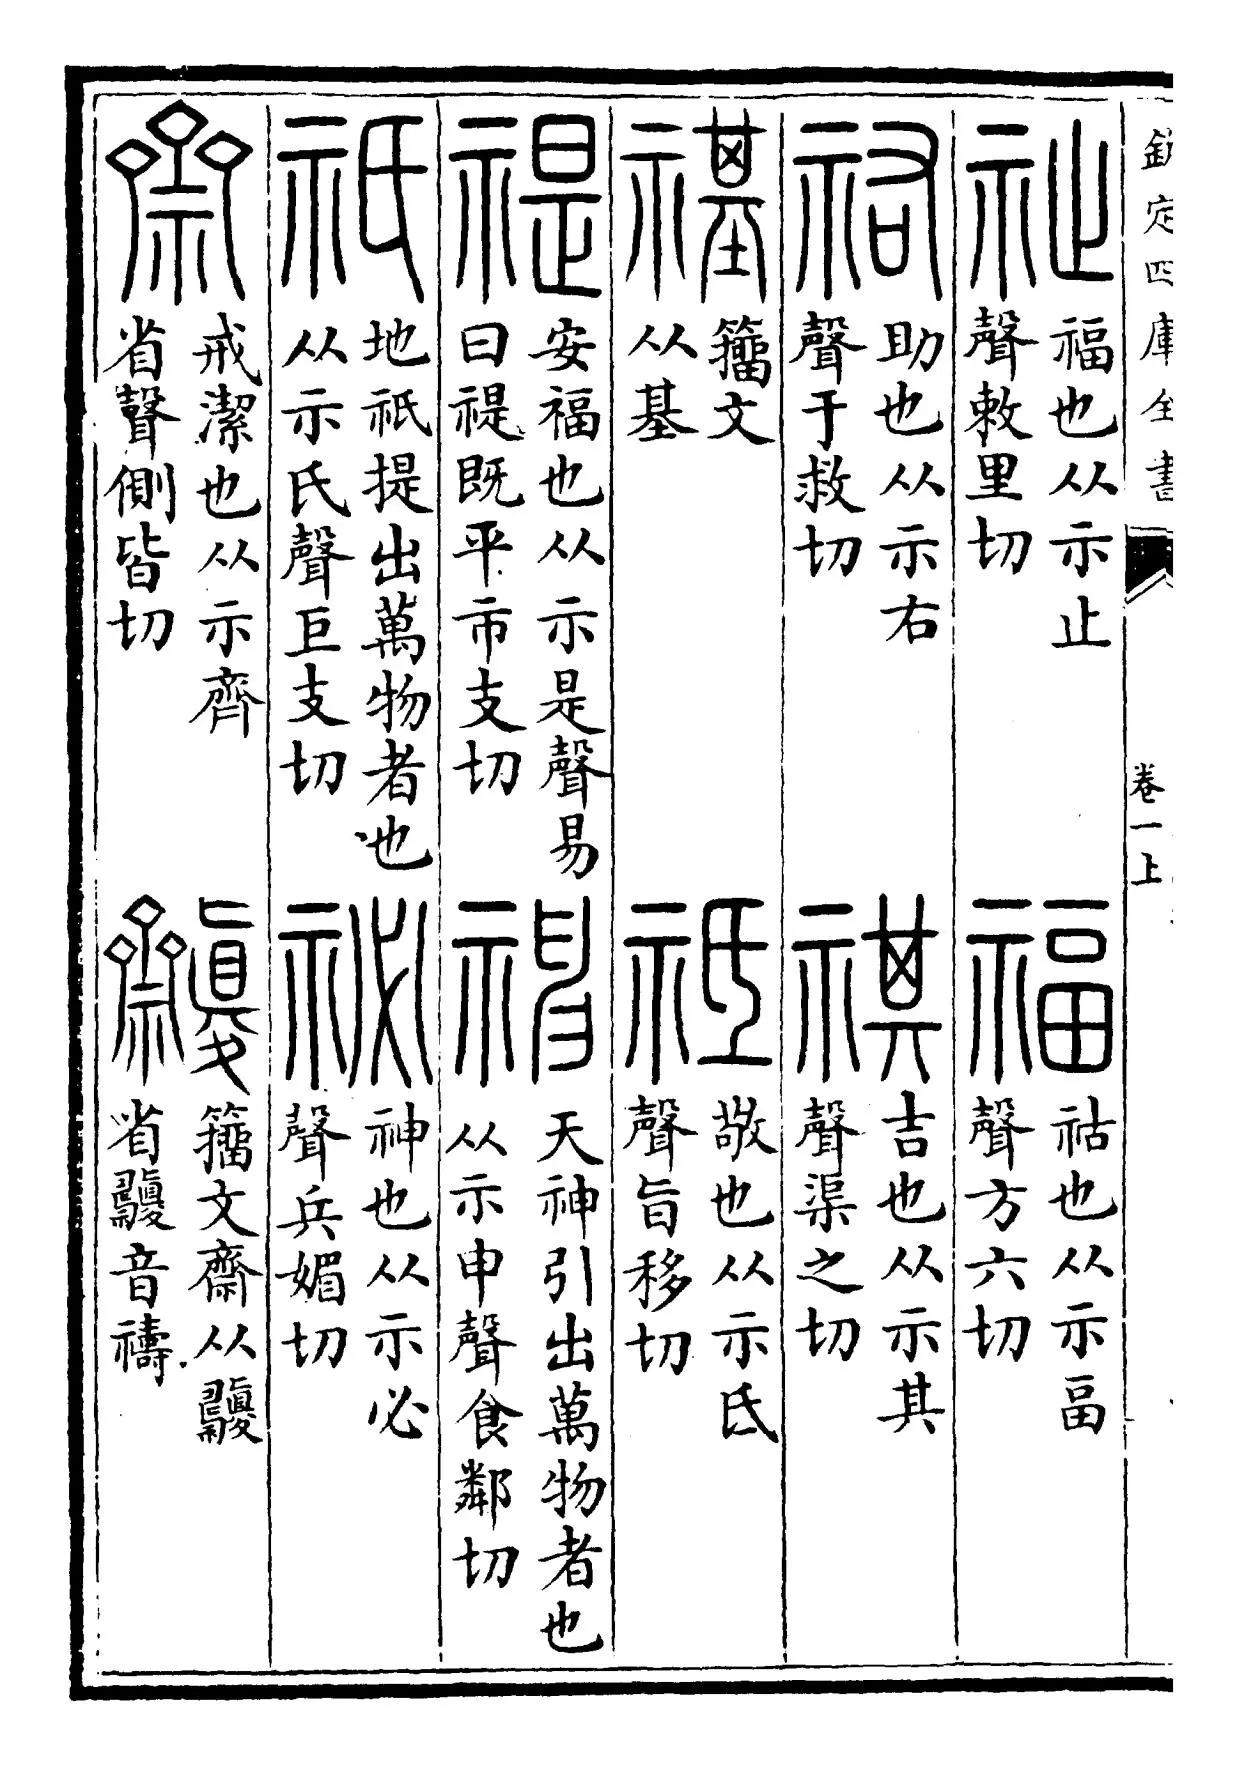 欽定四庫全書 卷一上
祉 福也从示止
聲敕里切
福 祜也从示畐
聲方六切
祐 助也从示右
聲于救切
祺 吉也从示其
聲渠之切
禥 籀文
从基
祗 敬也从示氐
聲旨移切
禔 安福也从示是聲易
曰禔既平市支切
神 天神引出萬物者也
从示申聲食鄰切
祇 地祇提出萬物者也
从示氏聲巨支切
祕 神也从示必
聲兵媚切
齋 戒潔也从示齊
省聲側皆切
籀文齋从
省音禱